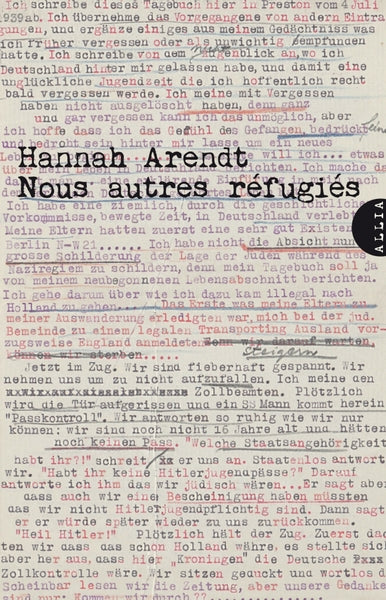 Ich schreibe dieses Tagebuch hier in Preston vom 4 Juli
1939ab. Ich übernehme das Vorgegangene von andern Eintra
gungen, und ergänze einiges aus meinem Gedächtniss was
ich früher vergessen oder als unwichtig empfunden
hatte. Ich schreibe von dem Augenblick an, wo ich
Deutschland hinter mir gelassen habe, und damit eine
unglückliche Jugendzeit die ich hoffentlich recht
bald vergessen werde. Ich meine mit Vergessen
haben nicht ausgelöscht haben, denn ganz
und gar vergessen kann ich das unmöglich, aber
ich hoffe dass ich das Gefühl des Gefangen, bedrückt
und bedroht sein hinter mir lasse um ein neues
Hannah Arendt
Nous autres réfugiés
ALLIA
Ich habe eine ziemlich, durch die geschichtlichen
Vorkommisse, bewegte Zeit, in Deutschland verlebt
Meine Eltern hatten zuerst eine sehr gut Existenz
Berlin N-W21...... Ich habe nicht die Absicht nun
grosse Schilderung der Lage der Juden während des
Naziregiem zu schildern, denn mein Tagebuch soll ja
von meinem neubegonnenen Lebensabschnitt berichten.
Ich gehe darum über wie ich dazu kam illegal nach
Holland zu gehen....... Das Erste was meine Eltern zu
meiner Auswanderung erledigten war, mich bei der jud.
Bemeinde zu einem/legalen Transporting Ausland vor-
zugsweise England anmeldeten. Denn wir darauf warten,
können wir sterben..... Steigern
Jetzt im Zug. Wir sind fieberhaft gespannt. Wir
nehmen uns um zu nicht aufzufallen. Ich meine den
Zollbeamten. Plötzlich
wird die Tür aufgerissen und ein SS Mann kommt herein
"Passkontroll". Wir antworten so ruhig wie wir nur
können; wir sind noch nicht 16 Jahre alt und hätten
noch keinen Pass. "Welche Staatsangehörigkeit
habt ihr?!" schreit/ er uns an. Staatenlos antwort
wir. "Habt ihr keine Hitlerjugenpässe?" Darauf
antworte ich ihm das wir jüdisch wären...Er sagt aber
dass auch wir eine Bescheinigung haben müssten
das wir nicht Hitlerjugendpflichtig sind. Dann sagt
er er würde später wieder zu uns zurückkommen.
"Heil Hitler!" Plötzlich hält der Zug. Zuerst dac
ten wir dass das schon Holland wäre, es stellte sich
aber her aus, dass hier "Kroningen" die Deutsche
Zollkontrolle wäre. Wir sitzen geduckt und wortlos da
Scheinbar lesen wir die Zeitung, aber unsere Gedanken